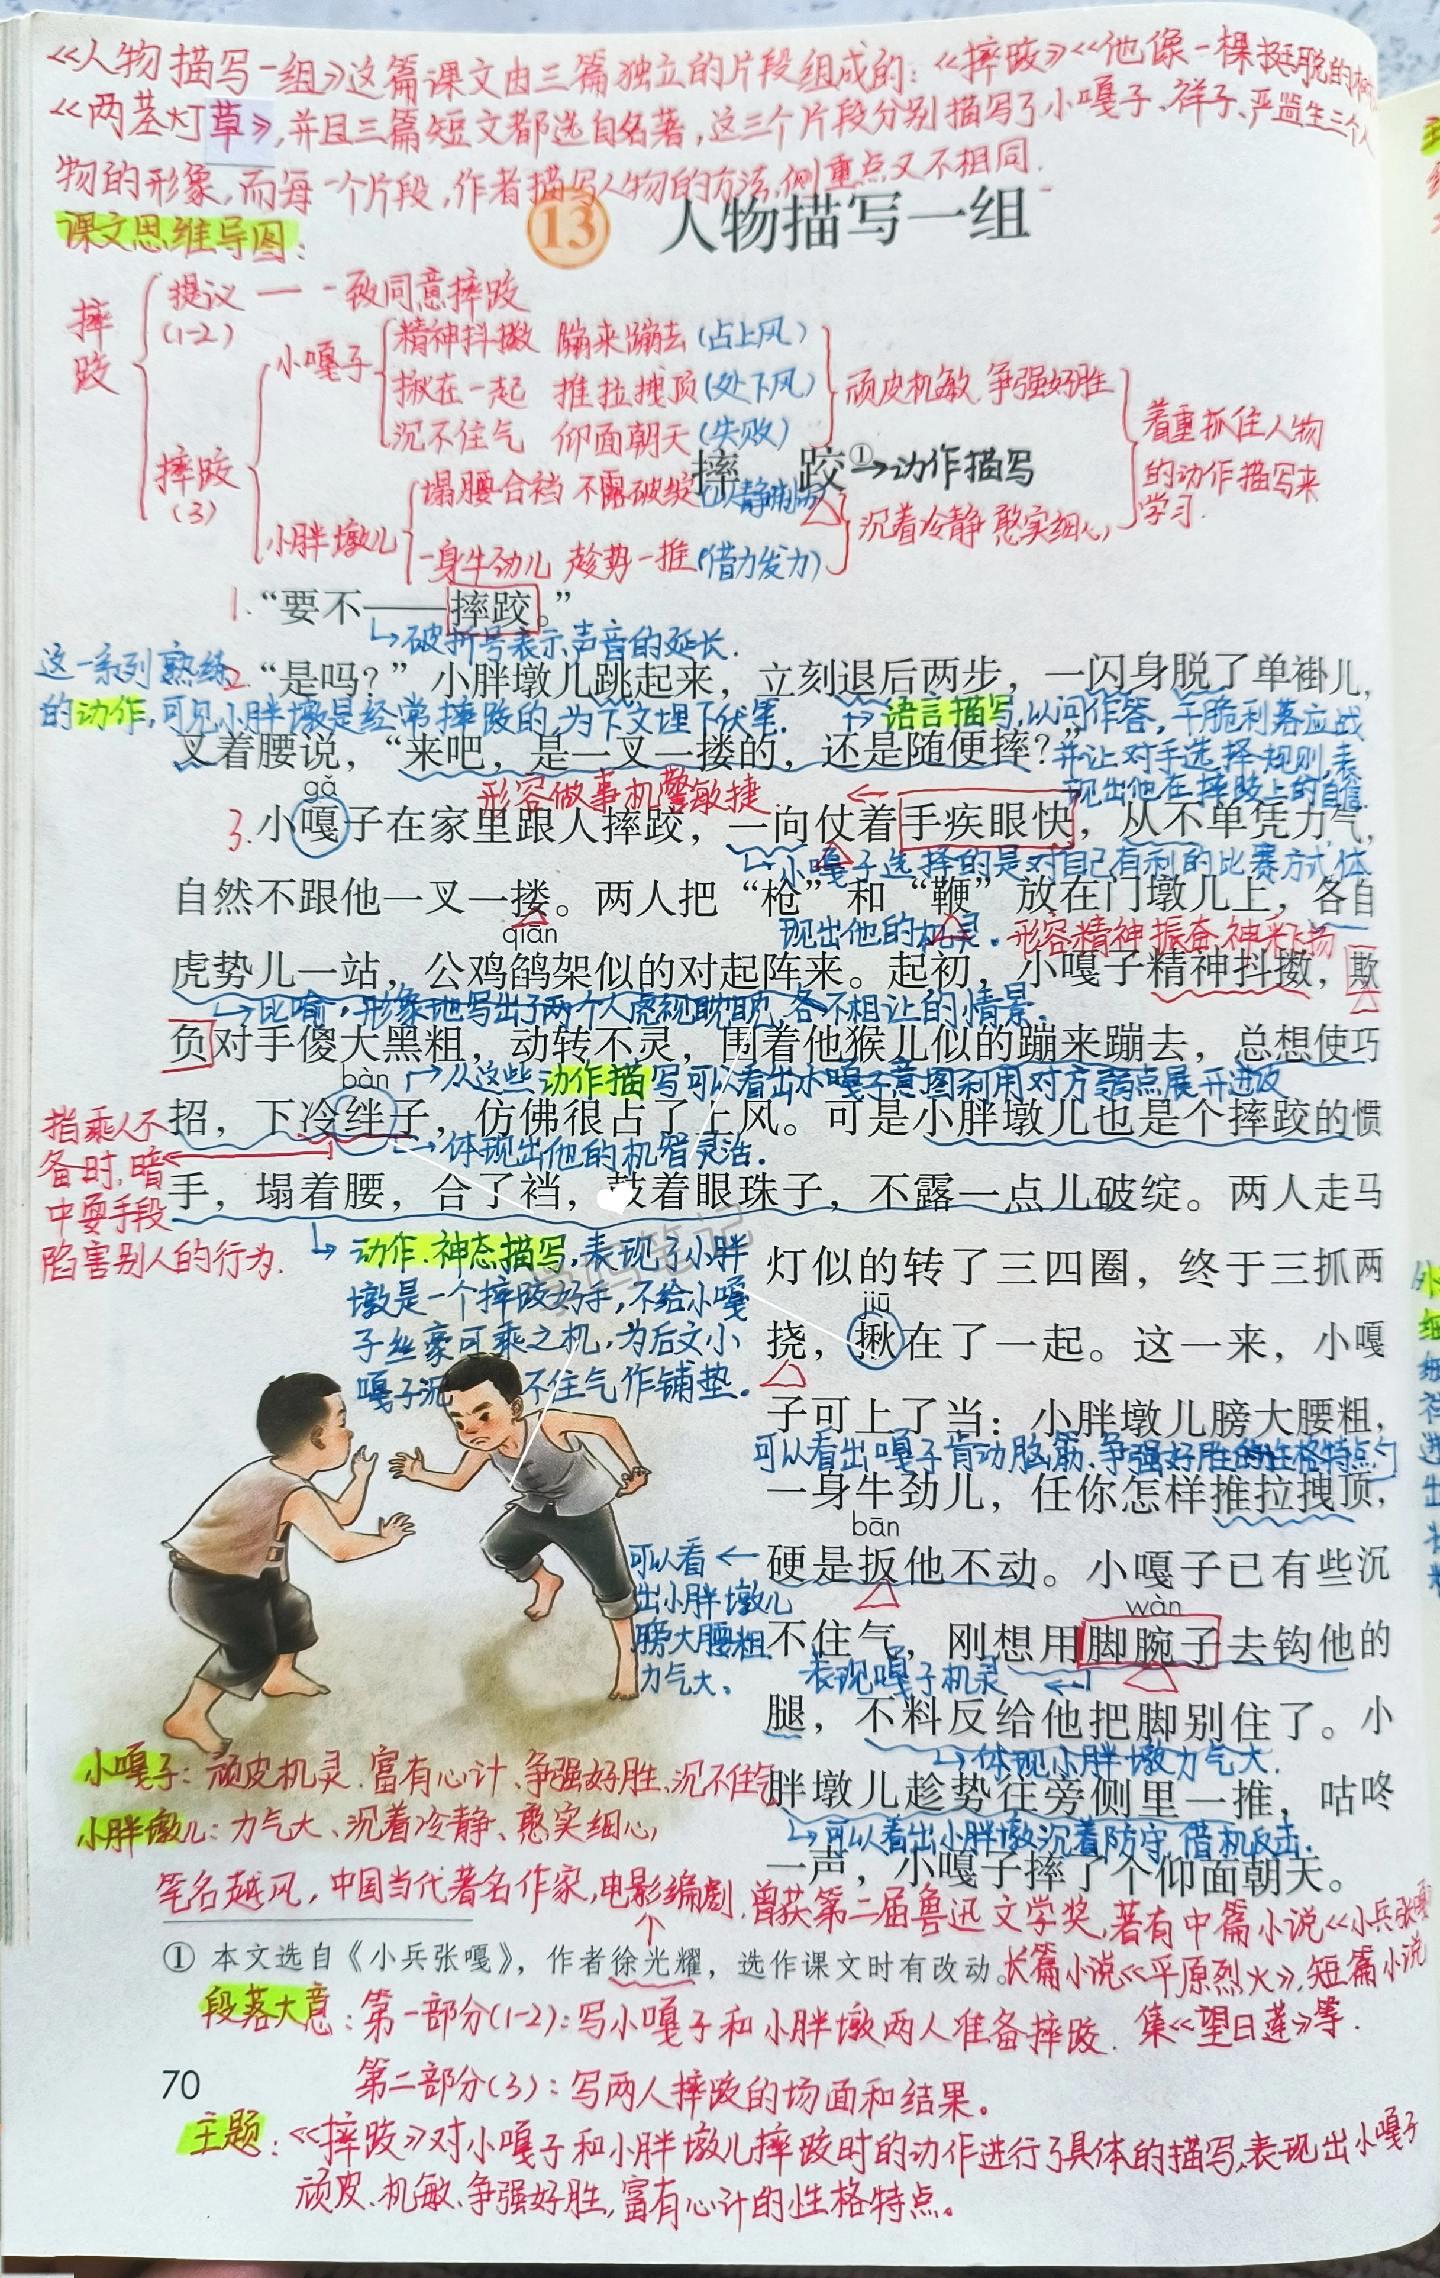 《人物描写一组》这篇课文由三篇独立的片段组成的:《摔跤》《他像一棵挺脱的
《两茎灯草》,并且三篇短文都选自名著,这三个片段分别描写了小嘎子、祥子、严监生三个人
物的形象,而每一个片段,作者描写人物的方法,侧重点又不相同.
13 人物描写一组
课文思维导图:
摔跤
提议 — 一致同意摔跤
(1-2)
小嘎子
精神抖擞 蹦来蹦去(占上风)
揪在一起 推拉拽顶(处下风)
沉不住气 仰面朝天(失败)
顽皮机敏、争强好胜
摔跤
(3)
小胖墩儿
塌腰合裆 不露破绽(以静制动)
一身牛劲儿 趁势一推(借力发力)
沉着冷静 憨实细心
着重抓住人物
的动作描写来
学习.
摔 跤①→动作描写
1.“要不——摔跤。”
破折号表示声音的延长.
2.“是吗?”小胖墩儿跳起来,立刻退后两步,一闪身脱了单褂儿,
这一系列熟练
的动作,可见小胖墩是经常摔跤的,为下文埋下伏笔.
语言描写,以问作答,干脆利落应战
并让对手选择规则,表
现出他在摔跤上的自信.
叉着腰说,“来吧,是一叉一搂的,还是随便摔?”
形容做事机警敏捷.
gǎ
3.小嘎子在家里跟人摔跤,一向仗着手疾眼快,从不单凭力气,
小嘎子选择的是对自己有利的比赛方式体
现出他的机灵.
自然不跟他一叉一搂。两人把“枪”和“鞭”放在门墩儿上,各自
形容精神振奋、神采飞扬
qiān
虎势儿一站,公鸡鹐架似的对起阵来。起初,小嘎子精神抖擞,欺
比喻,形象地写出了两个人虎视眈眈,各不相让的情景.
负对手傻大黑粗,动转不灵,围着他猴儿似的蹦来蹦去,总想使巧
从这些动作描写可以看出小嘎子意图利用对方弱点展开进攻
bàn
招,下冷绊子,仿佛很占了上风。可是小胖墩儿也是个摔跤的惯
体现出他的机智灵活.
指乘人不
备时,暗
中耍手段
陷害别人的行为.
手,塌着腰,合了裆,鼓着眼珠子,不露一点儿破绽。两人走马
动作、神态描写,表现了小胖
墩是一个摔跤好手,不给小嘎
子丝豪可乘之机,为后文小
嘎子沉 不住气作铺垫.
灯似的转了三四圈,终于三抓两
jiū
挠,揪在了一起。这一来,小嘎
子可上了当:小胖墩儿膀大腰粗,
可以看出嘎子肯动脑筋、争强好胜的性格特点
一身牛劲儿,任你怎样推拉拽顶,
bān
硬是扳他不动。小嘎子已有些沉
可以看
出小胖墩儿
膀大腰粗
力气大.
wàn
不住气,刚想用脚腕子去钩他的
表现嘎子机灵
腿,不料反给他把脚别住了。小
体现小胖墩力气大.
胖墩儿趁势往旁侧里一推,咕咚
可以看出小胖墩沉着防守,借机反击.
一声,小嘎子摔了个仰面朝天。
小嘎子:顽皮机灵、富有心计、争强好胜、沉不住气
小胖墩儿:力气大、沉着冷静、憨实细心
笔名越风,中国当代著名作家,电影编剧.曾获第二届鲁迅文学奖,著有中篇小说《小兵张嘎》
① 本文选自《小兵张嘎》,作者徐光耀,选作课文时有改动。
长篇小说《平原烈火》,短篇小说
集《望日莲》等.
段落大意:第一部分(1-2):写小嘎子和小胖墩两人准备摔跤.
第二部分(3):写两人摔跤的场面和结果。
70
主题:《摔跤》对小嘎子和小胖墩儿摔跤时的动作进行了具体的描写,表现出小嘎子
顽皮、机敏、争强好胜,富有心计的性格特点。